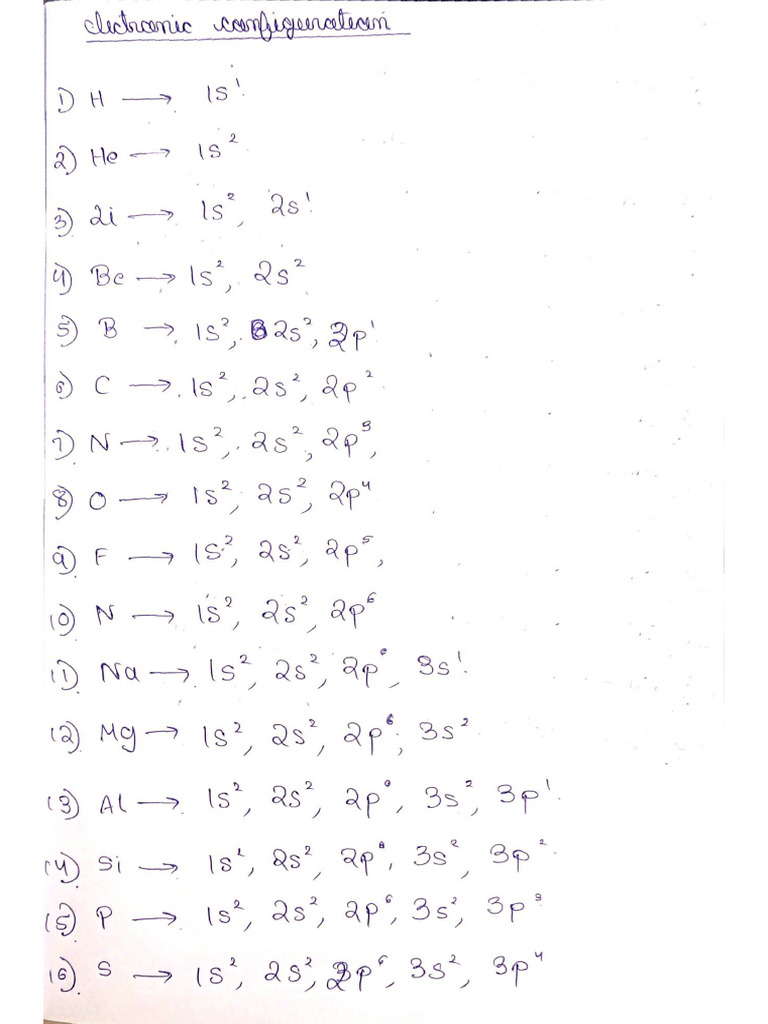 electronic configuration
1) H → 1s¹
2) He → 1s²
3) Li → 1s², 2s¹
4) Be → 1s², 2s²
5) B → 1s², 2s², 2p¹
6) C → 1s², 2s², 2p²
7) N → 1s², 2s², 2p³,
8) O → 1s², 2s², 2p⁴
9) F → 1s², 2s², 2p⁵,
10) N → 1s², 2s², 2p⁶
11) Na → 1s², 2s², 2p⁶, 3s¹
12) Mg → 1s², 2s², 2p⁶, 3s²
13) Al → 1s², 2s², 2p⁶, 3s², 3p¹
14) Si → 1s², 2s², 2p⁶, 3s², 3p²
15) P → 1s², 2s², 2p⁶, 3s², 3p³
16) S → 1s², 2s², 2p⁶, 3s², 3p⁴